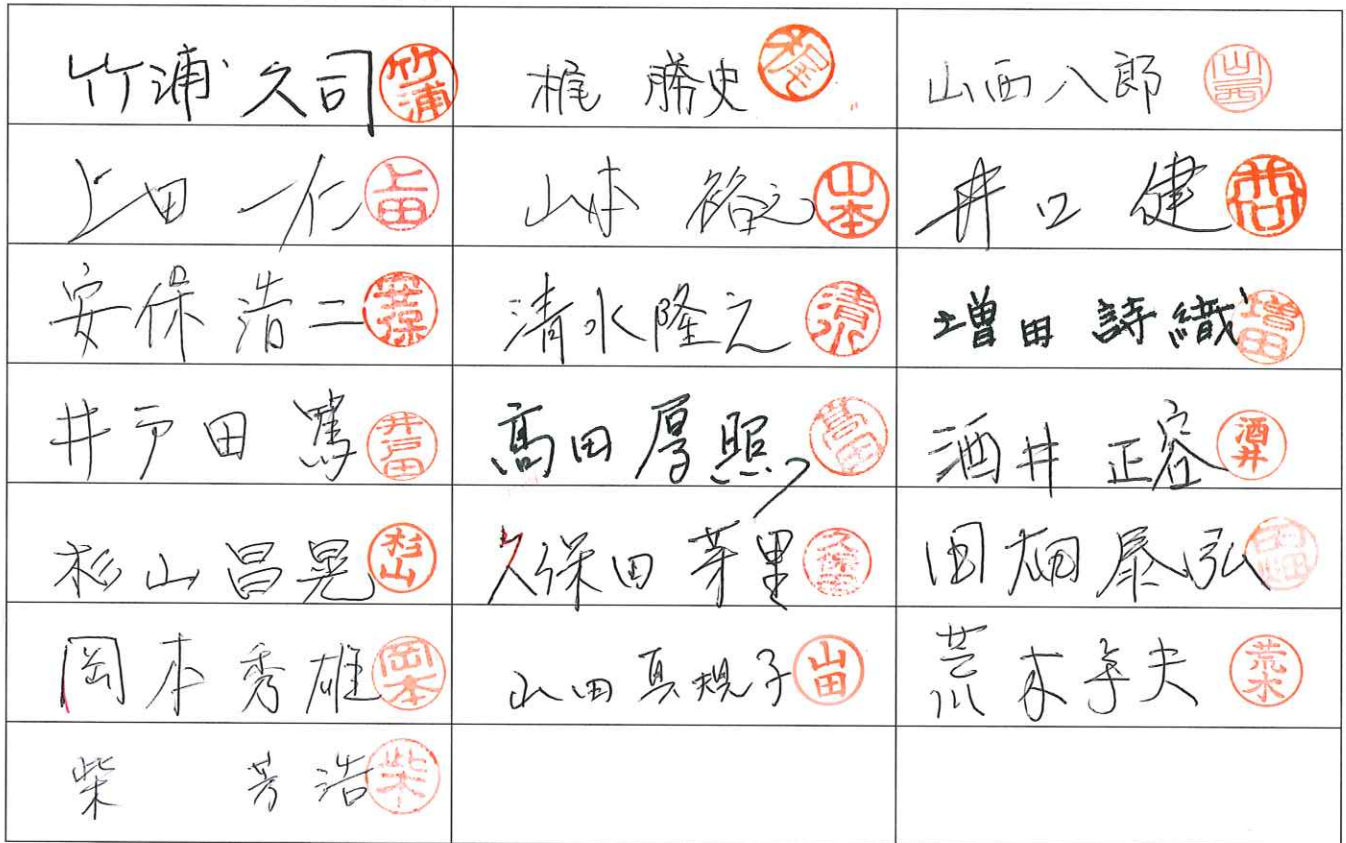 竹浦 久司 竹浦
梶 勝史 梶
山西八郎 山西
上田 一仁 上田
山本 裕之 山本
井口 健 井口
安保 浩二 安保
清水隆之 清水
増田 詩織 増田
井戸田 篤 井戸田
髙田 厚照 髙田
酒井 正容 酒井
杉山昌晃 杉山
久保田 芽里 久保田
田畑泰弘 田畑
岡本秀雄 岡本
山田真規子 山田
荒木 夫 荒木
柴 芳浩 柴